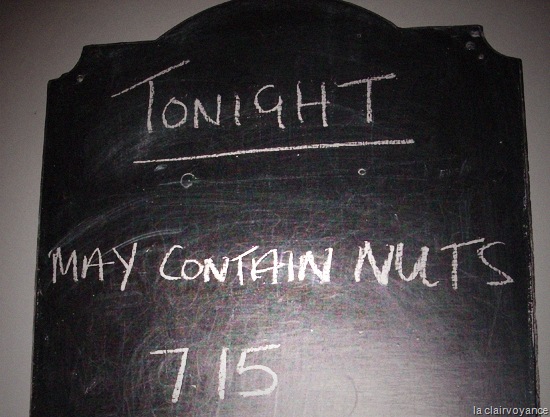 TONIGHT
MAY CONTAIN NUTS
7.15
la clairvoyance